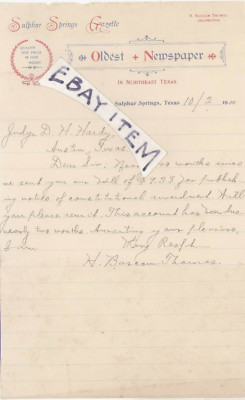 Sulphur Springs Gazette
H. Bascom Thomas
Oldest + Newspaper
In Northeast Texas
Sulphur Springs, Texas 10/2 19
EBAY ITEM
Judge D. H. Hardy,
Austin, Texas.
Dear Sir: two months since
we sent you our bill of $ for publish
ing notice of constitutional amendment.
you please remit. This account has been due
nearly two months. Awaiting your pleasure,
I am Very Respt.
H. Bascom Thomas.